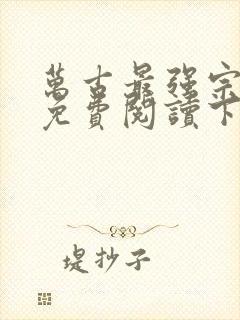 萬古最強宗
免費閱讀下
堤抄子